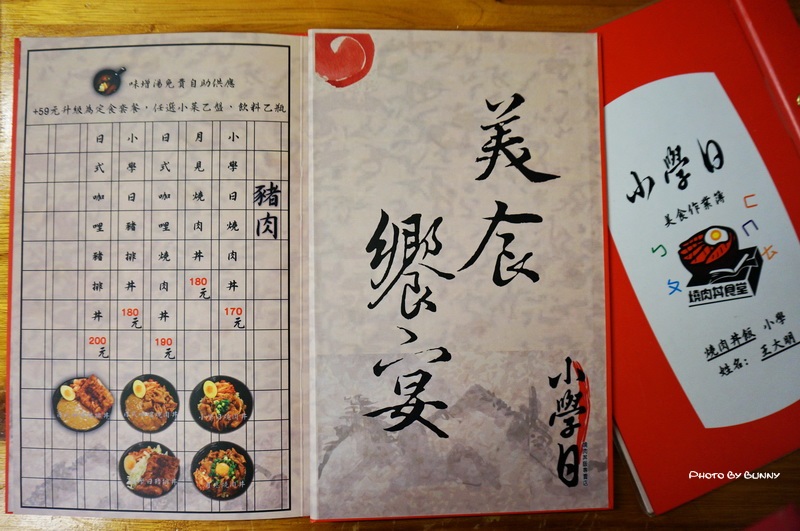 味增湯免費自助供應
+59元升級為定食套餐，任選小菜乙盤、飲料乙瓶
豬肉
小學日燒肉丼
170元
月見燒肉丼
180元
日式咖哩燒肉丼
190元
小學日豬排丼
180元
日式咖哩豬排丼
200元
美食
饗宴
小學日
小學日
美食作業簿
燒肉丼食堂
燒肉丼飯 小學
姓名：王大明
ㄈ
ㄅ
ㄇ
ㄆ
ㄊ
PHOTO BY BUNNY